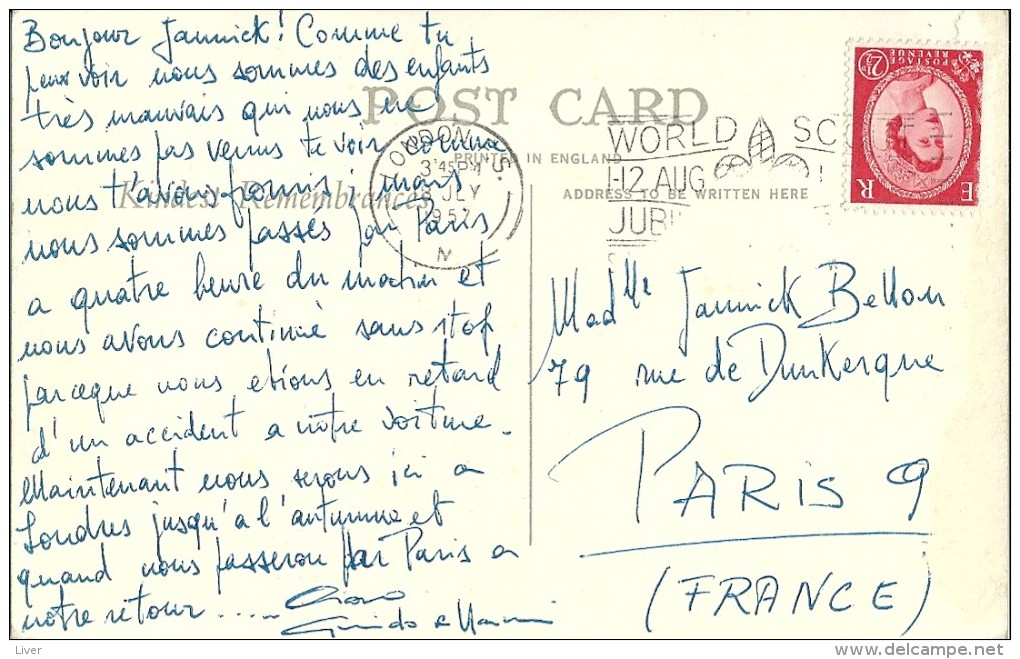 Bonjour Jannick! Comme tu
peux voir nous sommes des enfants
très mauvais qui nous ne
sommes pas venus te voir comme
nous t'avons promis; mais
nous sommes passés par Paris
a quatre heure du matin et
nous avons continué sans stop
parceque nous etions en retard
d'un accident a notre voiture.
Maintenant nous serons ici a
Londres jusqu'a l'autumne et
quand nous passeron par Paris a
notre retour .....
Ciao
Guido e
POST CARD
PRINTED IN ENGLAND
ADDRESS TO BE WRITTEN HERE
Kindest Remembrances
LONDON S.
3 45 PM
JLY
1957
WORLD SC
1-12 AUG
JUBI
POSTAGE
REVENUE
2½
E R
Madlle Jannick Bellon
79 rue de Dunkerque
PARIS 9
(FRANCE)
Liver
delcampe.net